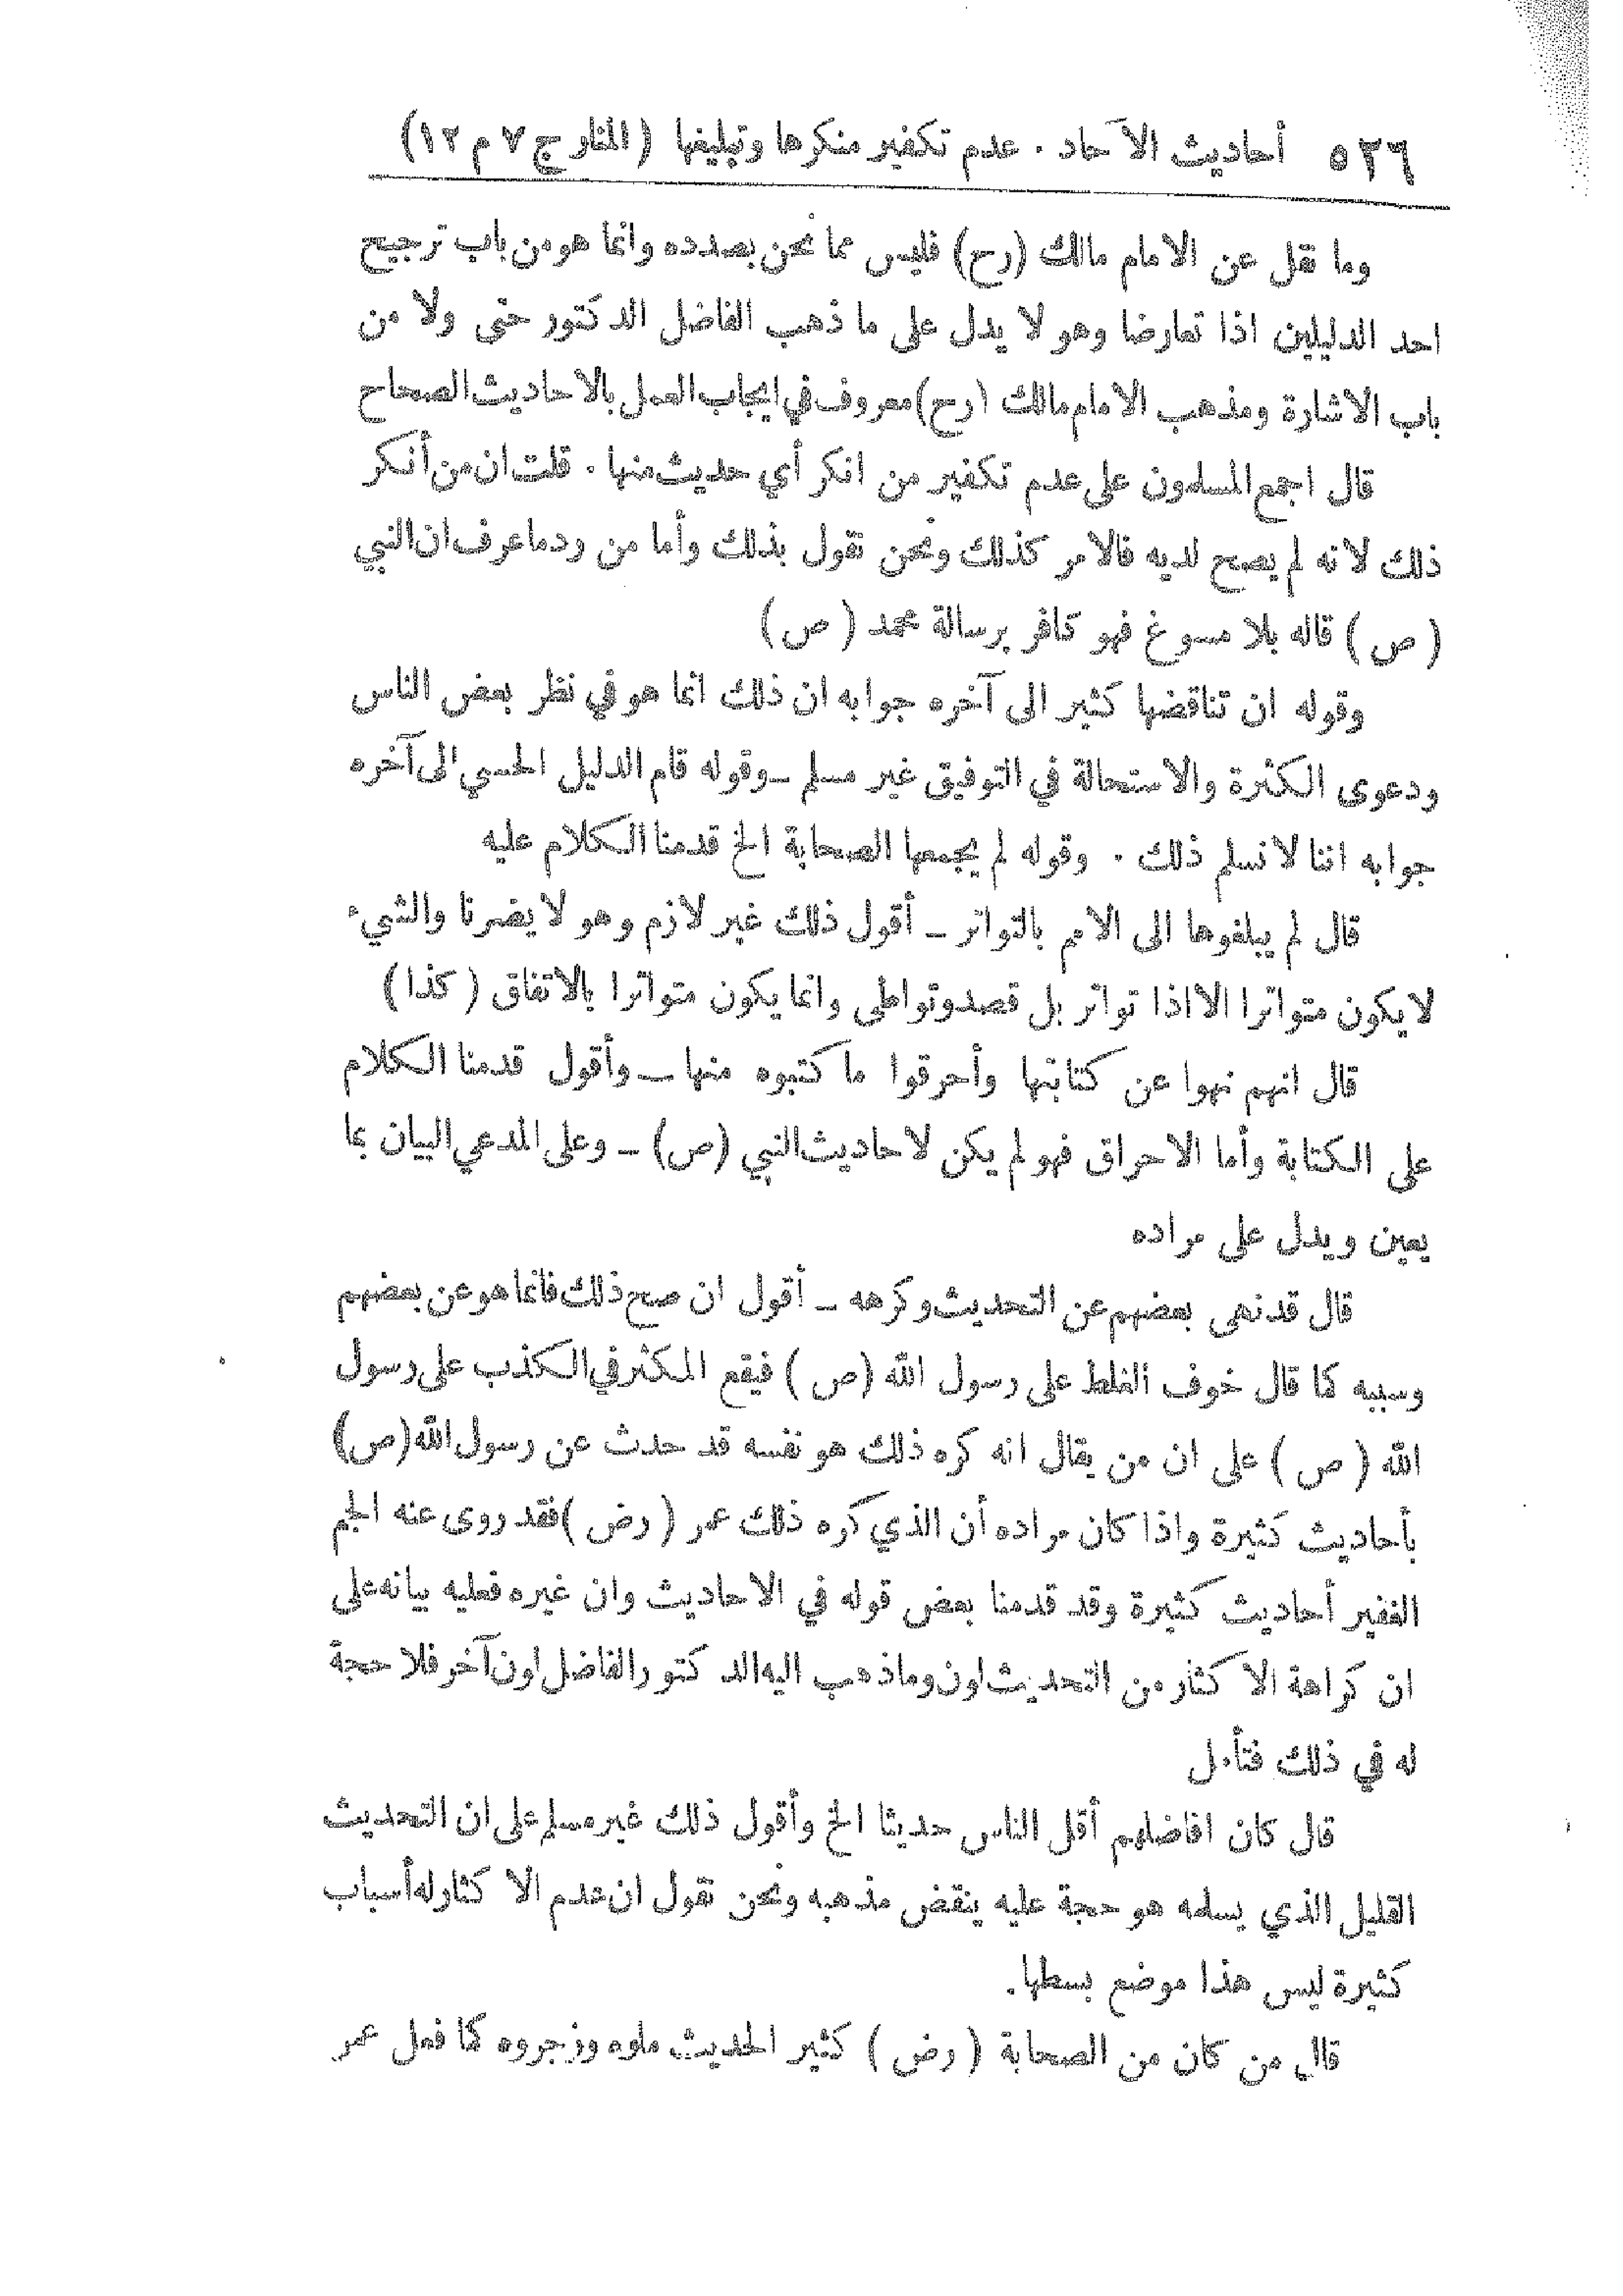 ٥٢٦ أحاديث الآحاد . عدم تكفير منكرها وتبليغها (المنار ج ٧ م ١٢)
وما نقل عن الامام مالك (رح) فليس مما نحن بصدده وانما هو من باب ترجيح
احد الدليلين اذا تعارضا وهو لا يدل على ما ذهب الفاضل الدكتور حتى ولا من
باب الاشارة ومذهب الامام مالك (رح) معروف في ايجاب العمل بالاحاديث الصحاح
قال اجمع المسلمون على عدم تكفير من انكر أي حديث منها . قلت ان من أنكر
ذلك لانه لم يصح لديه فالامر كذلك ونحن نقول بذلك وأما من رد ما عرف ان النبي
(ص) قاله بلا مسوغ فهو كافر برسالة محمد (ص)
وقوله ان تناقضها كثير الى آخره جوابه ان ذلك انما هو في نظر بعض الناس
ودعوى الكثرة والاستحالة في التوفيق غير مسلم ــ وقوله قام الدليل الحسي الى آخره
جوابه اننا لا نسلم ذلك . وقوله لم يجمعها الصحابة الخ قدمنا الكلام عليه
قال لم يبلغوها الى الامم بالتواتر ــ أقول ذلك غير لازم وهو لا يضرنا والشيء
لا يكون متواترا الا اذا تواتر بل قصد وتواطى وانما يكون متواترا بالاتفاق (كذا)
قال انهم نهوا عن كتابتها وأحرقوا ما كتبوه منها ــ وأقول قدمنا الكلام
على الكتابة وأما الاحراق فهو لم يكن لاحاديث النبي (ص) ــ وعلى المدعي البيان بما
يعين ويدل على مراده
قال قد نهى بعضهم عن التحديث وكرهه ــ أقول ان صح ذلك فانما هو عن بعضهم
وسببه كما قال خوف الغلط على رسول الله (ص) فيقع المكثر في الكذب على رسول
الله (ص) على ان من يقال انه كره ذلك هو نفسه قد حدث عن رسول الله (ص)
بأحاديث كثيرة واذا كان مراده أن الذي كره ذلك عمر (رض) فقد روى عنه الجم
الغفير أحاديث كثيرة وقد قدمنا بعض قوله في الاحاديث وان غيره فعليه بيانه على
ان كراهة الاكثار من التحديث لون وما ذهب اليه الدكتور الفاضل لون آخر فلا حجة
له في ذلك فتأمل
قال كان افاضلهم أقل الناس حديثا الخ وأقول ذلك غير مسلم على ان التحديث
القليل الذي يسلمه هو حجة عليه ينقض مذهبه ونحن نقول ان عدم الاكثار له أسباب
كثيرة ليس هذا موضع بسطها.
قال من كان من الصحابة (رض) كثير الحديث ملوه وزجروه كما فعل عمر